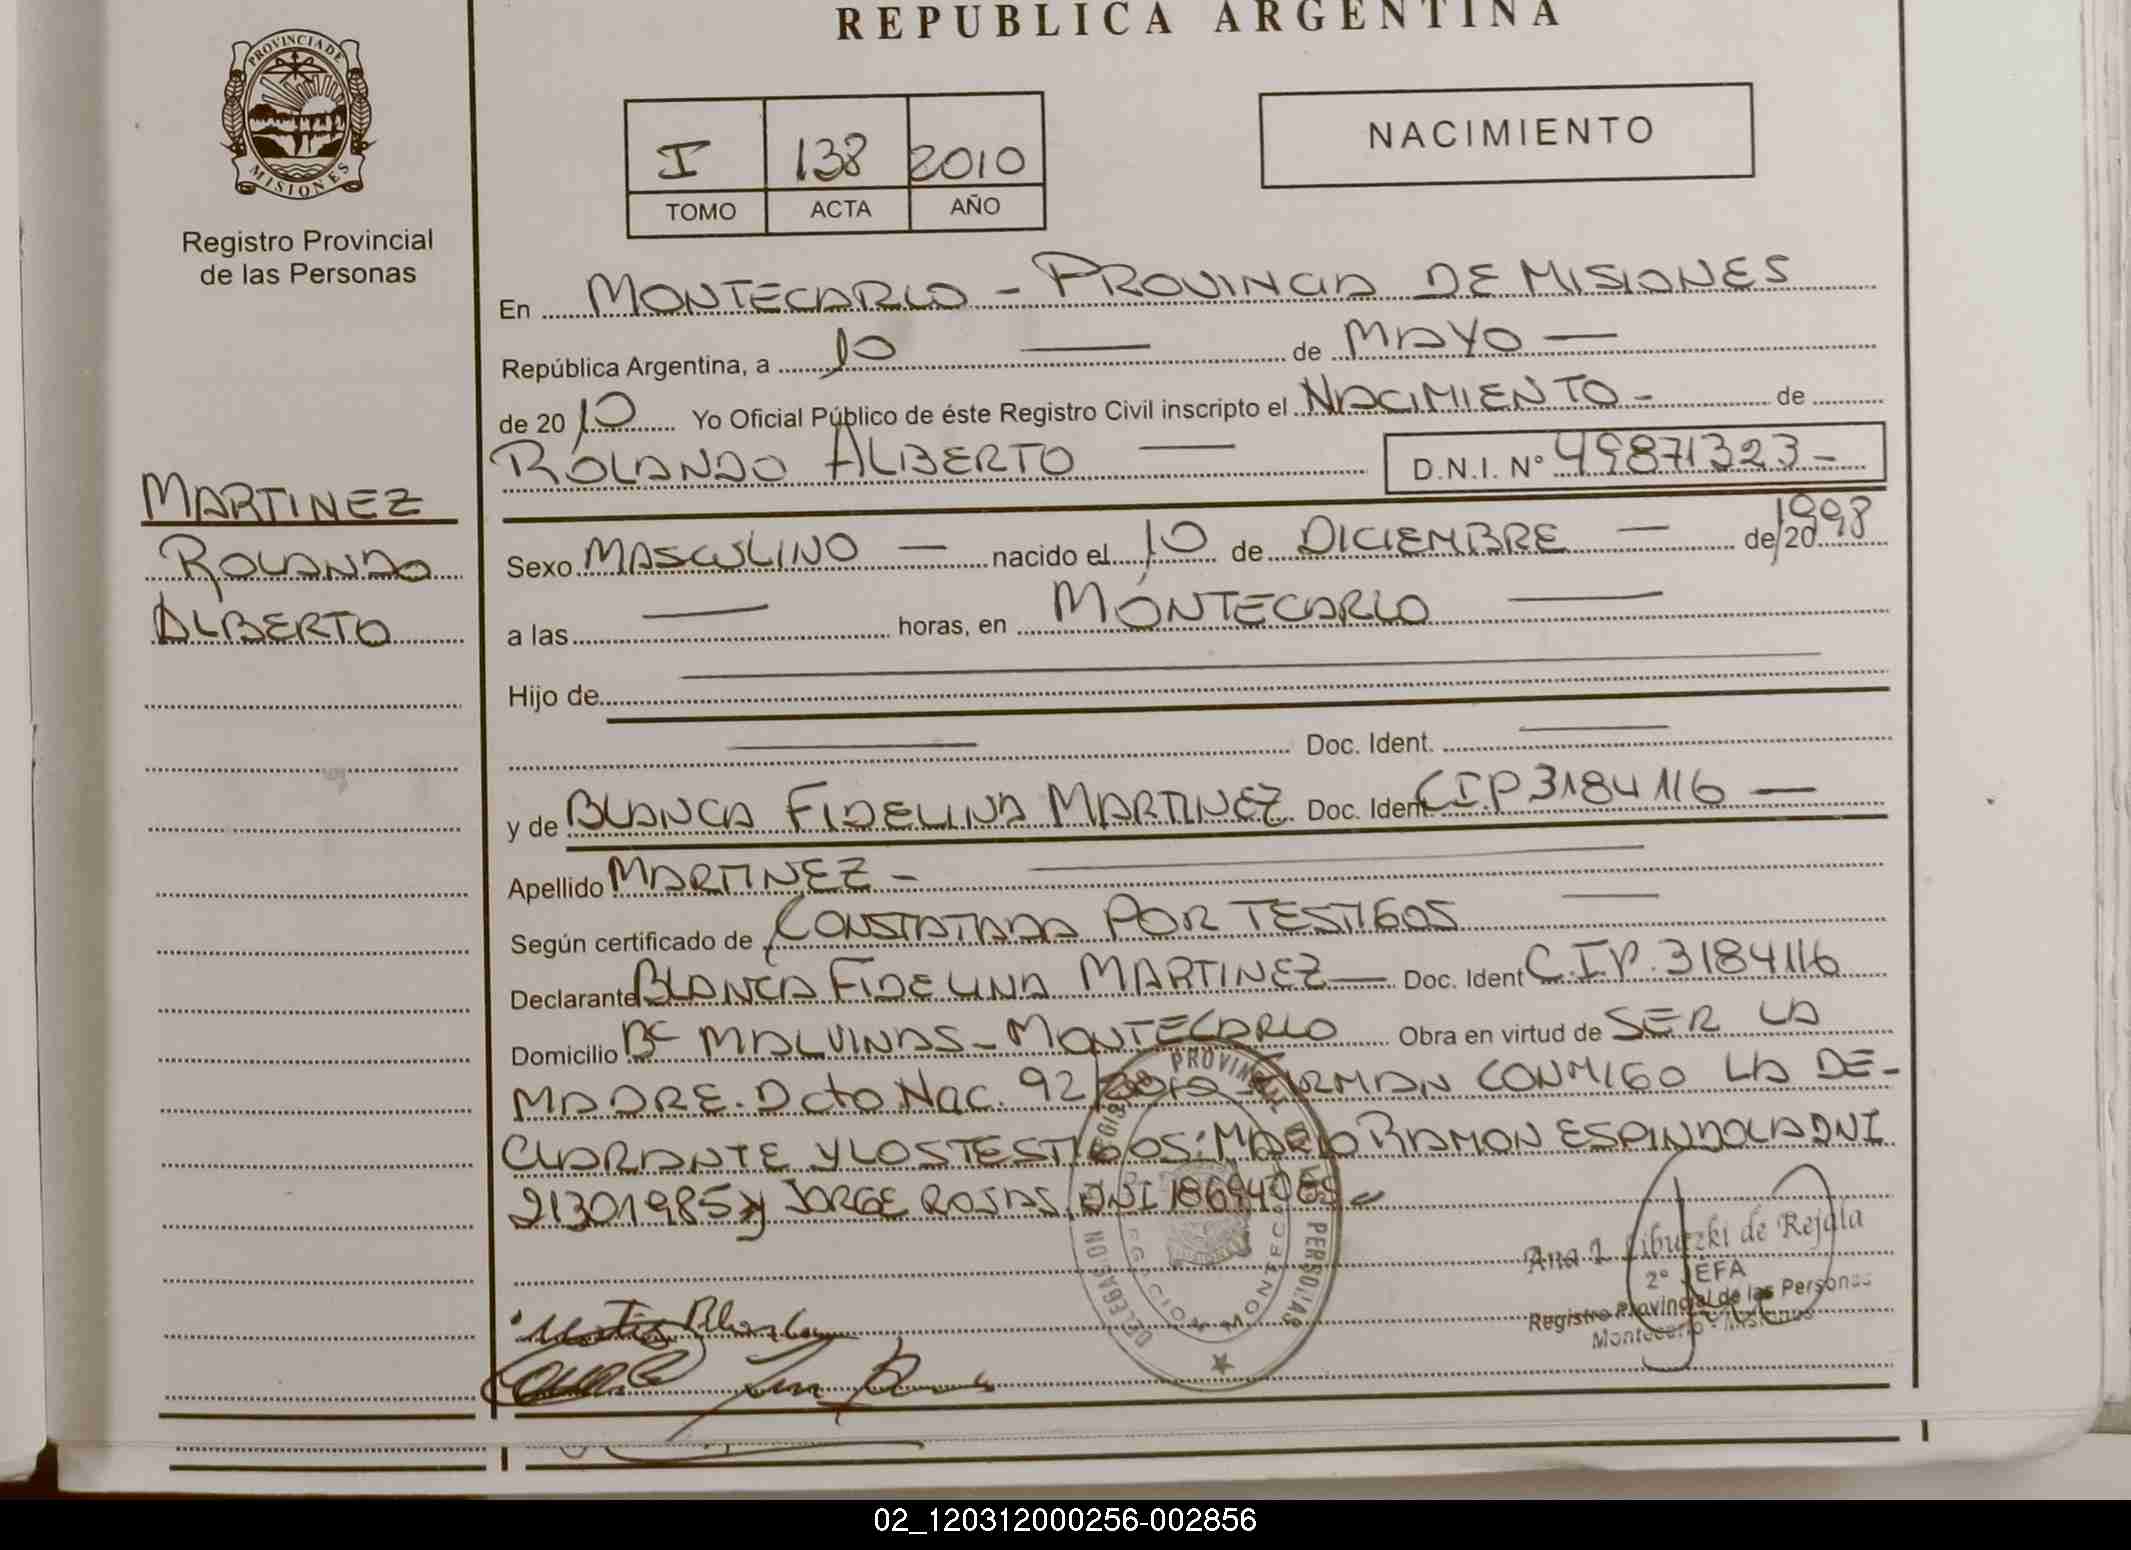 REPUBLICA ARGENTINA
PROVINCIA DE
MISIONES
Registro Provincial
de las Personas
I 138 2010
TOMO ACTA AÑO
NACIMIENTO
En MONTECARLO - PROVINCIA DE MISIONES
República Argentina, a 10 — de MAYO —
de 2010 Yo Oficial Público de éste Registro Civil inscripto el NACIMIENTO - de
ROLANDO ALBERTO — D.N.I. Nº 49871323-
MARTINEZ
ROLANDO
ALBERTO
Sexo MASCULINO — nacido el 10 de DICIEMBRE — de/20 1998
a las — horas, en MONTECARLO —
Hijo de —
— Doc. Ident. —
y de BLANCA FIDELINA MARTINEZ Doc. Ident. C.I.P 3184116 —
Apellido MARTINEZ - —
Según certificado de CONSTATADA POR TESTIGOS —
Declarante BLANCA FIDELINA MARTINEZ — Doc. Ident C.I.P. 3184116
Domicilio Bº MALVINAS - MONTECARLO Obra en virtud de SER LA
MADRE. Dcto Nac. 92/2010 - FIRMAN CONMIGO LA DE-
CLARANTE Y LOS TESTIGOS: MARIO RAMON ESPINDOLA DNI
21301985 y JORGE ROJAS DNI
PROVINCIAL
PERSONAS
DELEGACION
Ana I. de Rejala
2º JEFA
Registro Provincial de las Personas
Montecarlo - Misiones
02_120312000256-002856